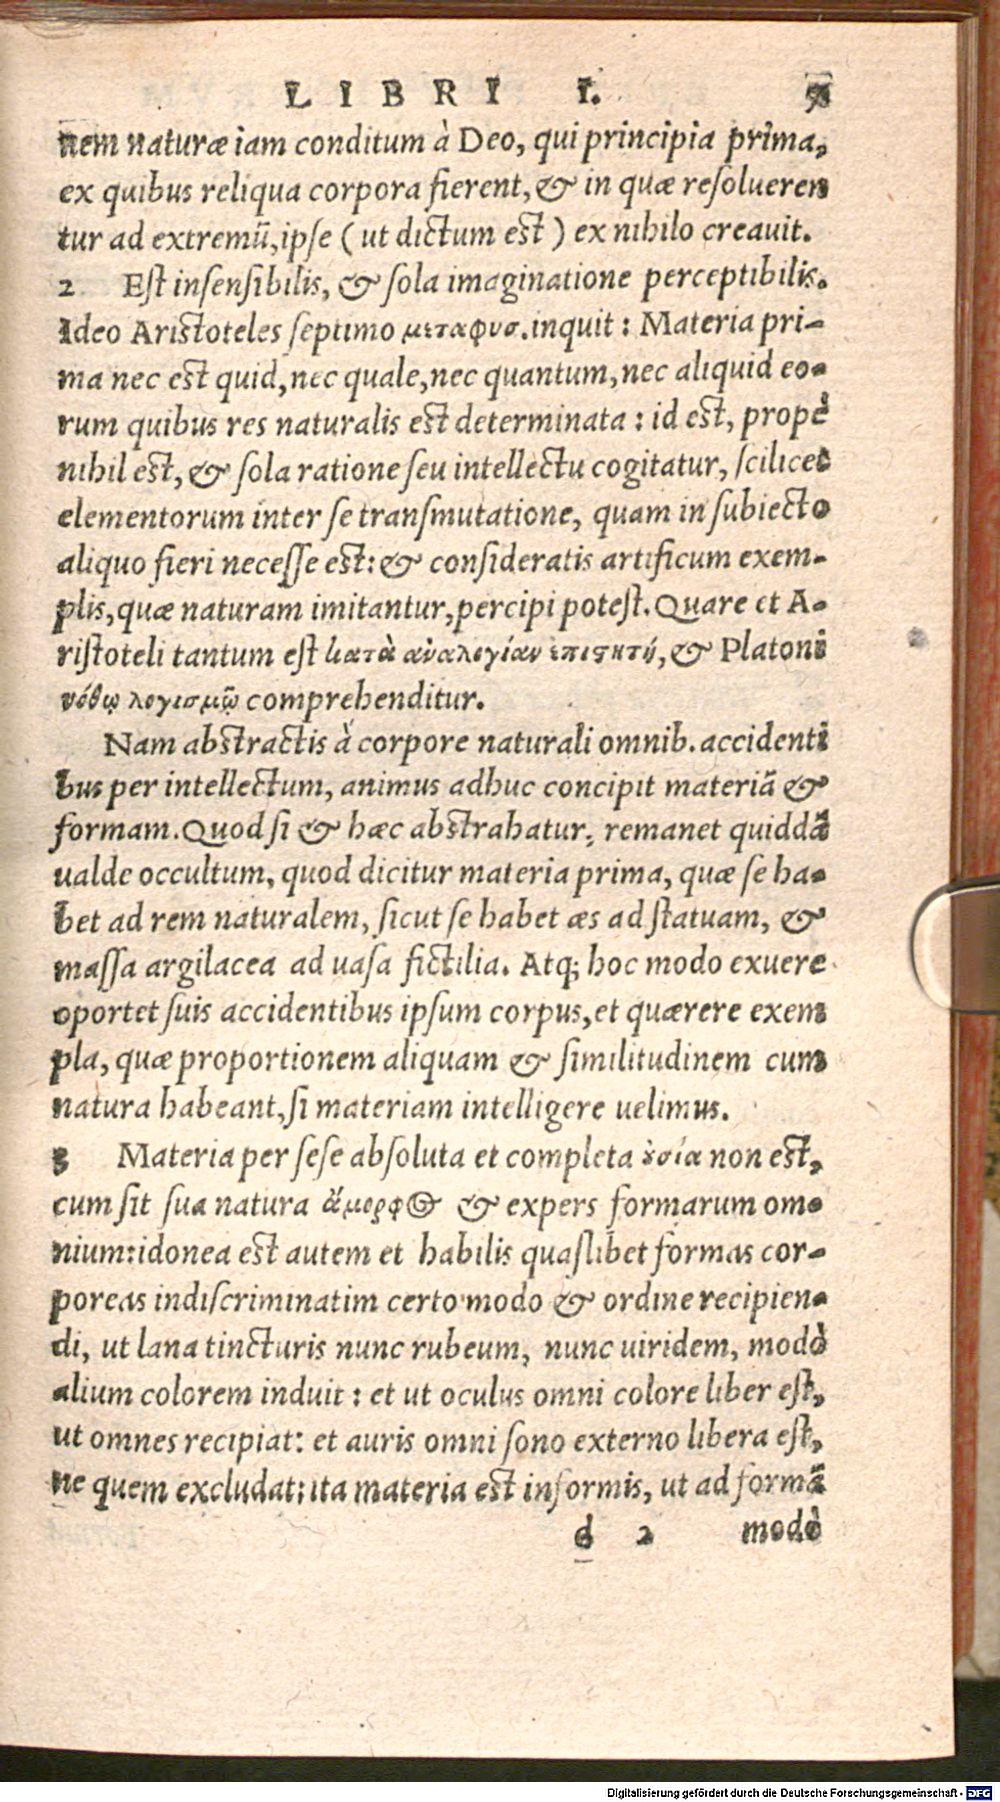 LIBRI I.
nem naturæ iam conditum à Deo, qui principia prima,
ex quibus reliqua corpora fierent, & in quæ resolueren
tur ad extremū, ipse ( ut dictum est ) ex nihilo creauit.
2 Est insensibilis, & sola imaginatione perceptibilis.
Ideo Aristoteles septimo μεταφυσ. inquit : Materia pri-
ma nec est quid, nec quale, nec quantum, nec aliquid eo-
rum quibus res naturalis est determinata : id est, propè
nihil est, & sola ratione seu intellectu cogitatur, scilicet
elementorum inter se transmutatione, quam in subiecto
aliquo fieri necesse est: & consideratis artificum exem-
plis, quæ naturam imitantur, percipi potest. Quare et A-
ristoteli tantum est κατὰ ἀναλογίαν ἐπιστητή, & Platoni
νόθῳ λογισμῷ comprehenditur.
Nam abstractis à corpore naturali omnib. accidenti
bus per intellectum, animus adhuc concipit materiā &
formam. Quod si & hæc abstrahatur, remanet quiddā
ualde occultum, quod dicitur materia prima, quæ se ha-
bet ad rem naturalem, sicut se habet æs ad statuam, &
massa argilacea ad uasa fictilia. Atq; hoc modo exuere
oportet suis accidentibus ipsum corpus, et quærere exem
pla, quæ proportionem aliquam & similitudinem cum
natura habeant, si materiam intelligere uelimus.
3 Materia per sese absoluta et completa ȣ̓σία non est,
cum sit sua natura ἄμορφος & expers formarum om-
nium: idonea est autem et habilis quaslibet formas cor-
poreas indiscriminatim certo modo & ordine recipien-
di, ut lana tincturis nunc rubeum, nunc uiridem, modò
alium colorem induit : et ut oculus omni colore liber est,
ut omnes recipiat: et auris omni sono externo libera est,
ne quem excludat: ita materia est informis, ut ad formā
d 2 modò
Digitalisierung gefördert durch die Deutsche Forschungsgemeinschaft - DFG